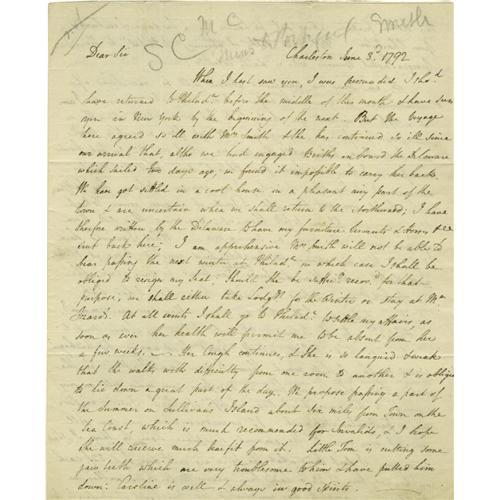 S C M C Smith
Dear Sir Charleston June 3d 1792
When I last saw you, I was persuaded I shd
have returned to Philada before the middle of this month & have seen
you in New York by the beginning of the next. But the voyage
here agreed so ill with Mrs Smith & she has continued so ill since
our arrival that, altho we had engaged Births on board the Delaware
which sailed two days ago, we found it impossible to carry her back.
We have got settled in a cool house in a pleasant airy part of the
town & are uncertain when we shall return to the Northward; I have
therefore written by the Delaware to have my furniture Servants & Horses
sent back here; I am apprehensive Mrs Smith will not be able to
bear passing the next winter in Philada in which case I shall be
obliged to resign my Seat. Should she be sufficy recovd for that
purpose, we shall either take Lodgs for the Winter or stay at Mrs
Izard's. At all events I shall go to Philada to settle my affairs, as
soon as ever her health will permit me to be absent from her
a few weeks. Her Cough continues, & she is so languid & weak
that she walks with difficulty from one room to another & is oblig'd
to lie down a great part of the day. We propose passing a part of
the Summer on Sullivans Island about Six miles from Town on the
Sea Coast, which is much recommended for Invalids, & I hope
she will receive much benefit from it. Little Tom is cutting some
jaw teeth which are very troublesome to him & have pulled him
down: Caroline is well & always in good Spirits.